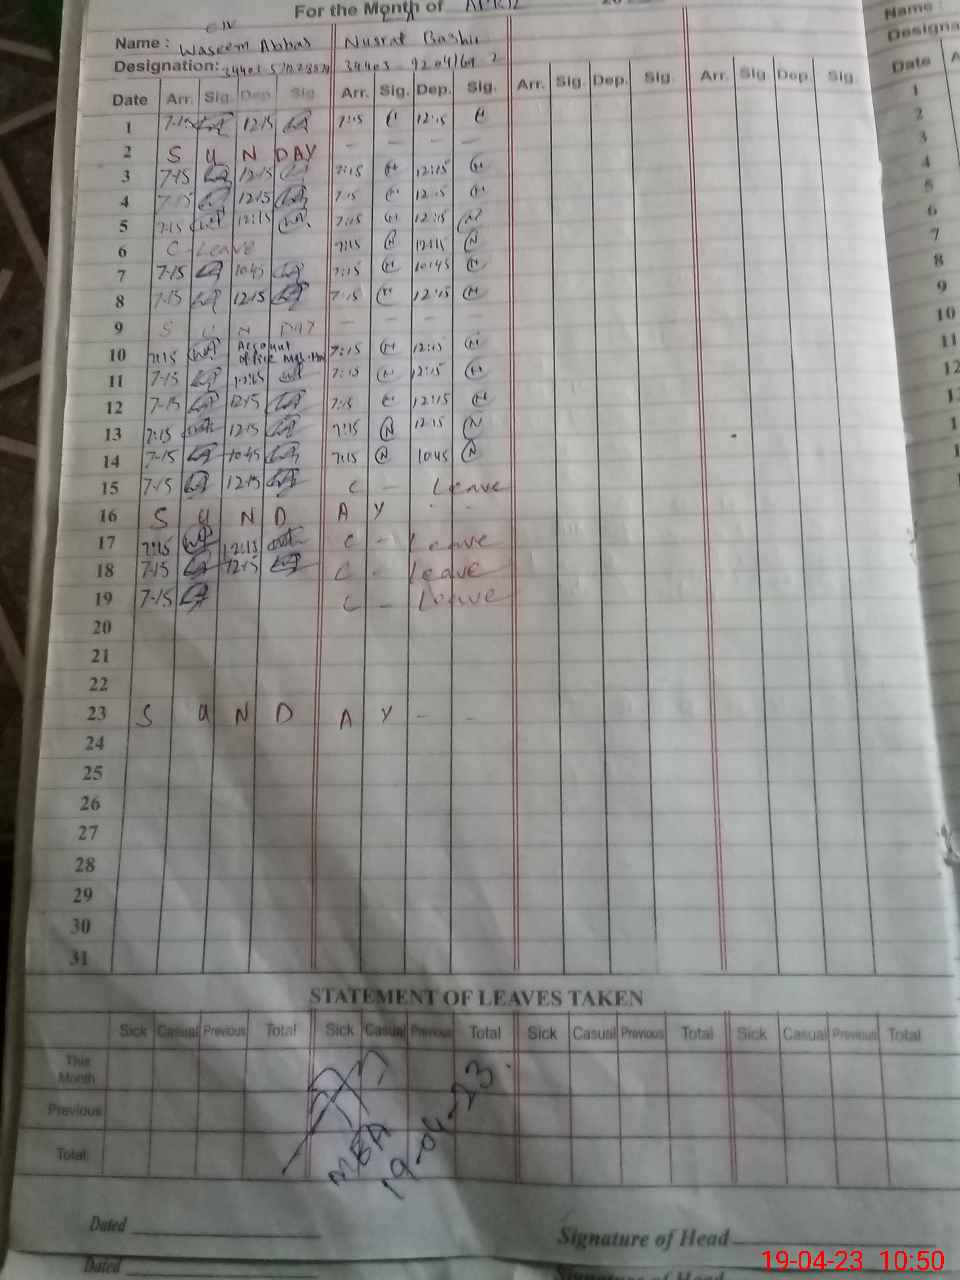 For the Month of APRIL
Name : Waseem Abbas Nusrat Bashir
Name :
Designation: 34403
Designa
Date Arr. Sig. Dep. Sig. Arr. Sig. Dep. Sig. Arr. Sig. Dep. Sig. Arr. Sig. Dep. Sig.
Date A
1 7-15 12:15 7:15 12:15
2 S U N DAY - - - -
3 7-15 12:15 7:15 12:15
4 7-15 12:15 7:15 12:15
5 7:15 12:15 7:15 12:15
6 C - Leave 7:15 12:15
7 7-15 10:45 7:15 10:45
8 7-15 12:15 7:15 12:15
9 S U N DAY - - - -
10 7:15 office 7:15 12:15
11 7-15 12:15 7:15 12:15
12 7-15 12:15 7:15 12:15
13 7:15 12:15 7:15 12:15
14 7-15 10:45 7:15 10:45
15 7-15 12:15 C - Leave
16 S U N D A Y - -
17 7:15 12:15 C - Leave
18 7-15 12:15 C - Leave
19 7-15 C - Leave
20
21
22
23 S U N D A Y - -
24
25
26
27
28
29
30
31
1
2
3
4
5
6
7
8
9
10
11
12
STATEMENT OF LEAVES TAKEN
Sick Casual Previous Total Sick Casual Previous Total Sick Casual Previous Total Sick Casual Previous Total
This Month
Previous
Total:
MEA
19-04-23
Dated
Signature of Head
Dated
Signature of Head
19-04-23 10:50